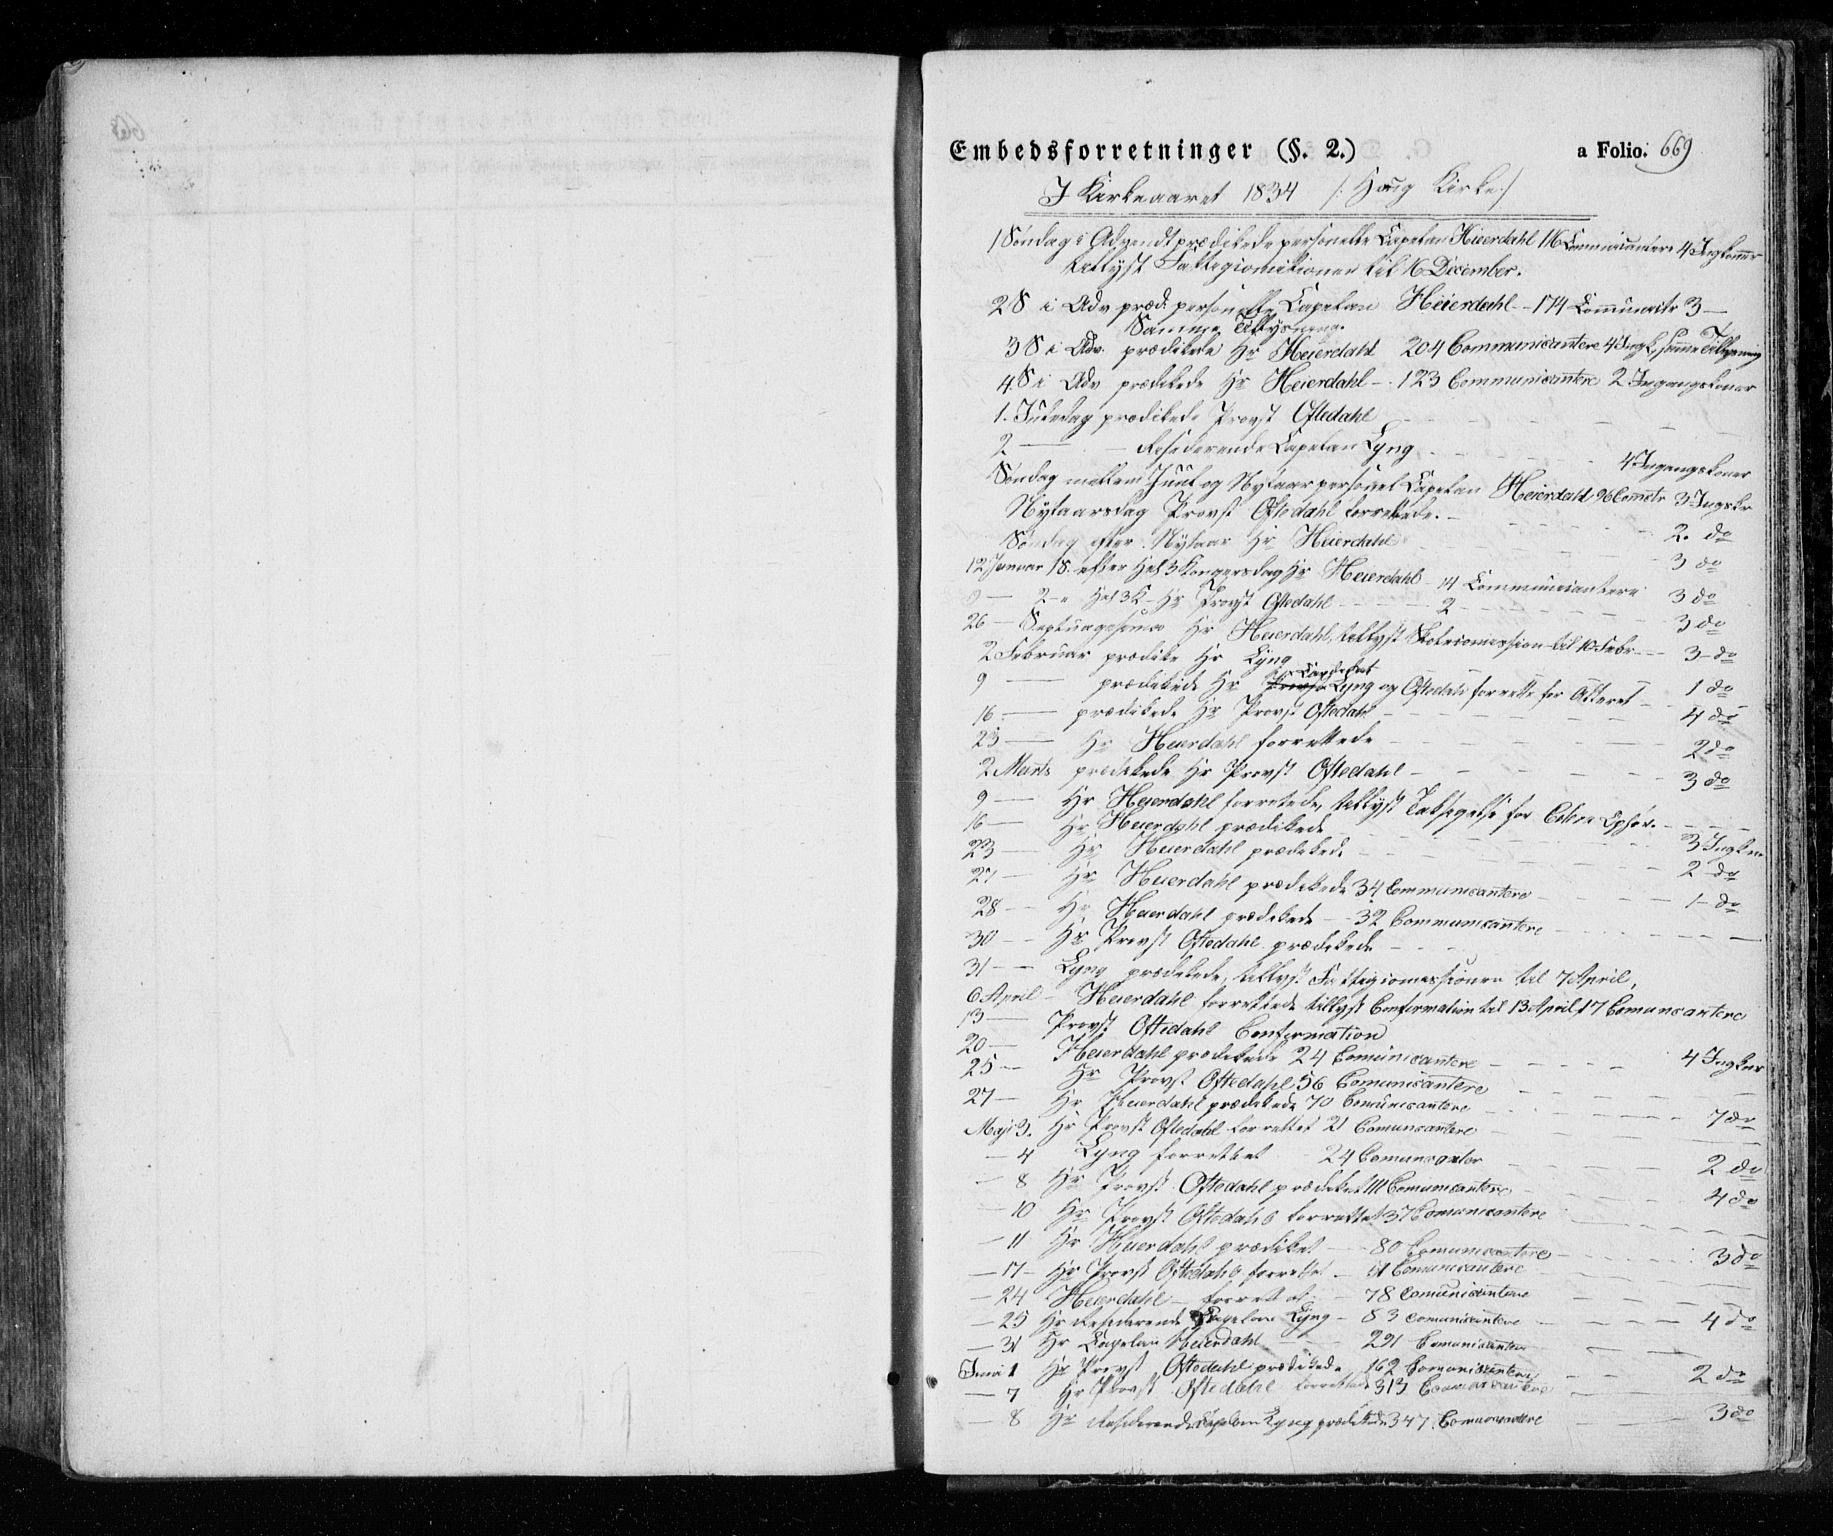 Embedsforretninger (§. 2.) a Folio. 669
I Kirkeaaret 1834 /: Haug Kirke :/
1 Søndag i Advendt prædikede personelle Capelan Heierdahl 116 Communicantere 4 Ingkoner
tillyst Fattigcomitionen til 16 December.
2 S i Adv præd. personelle Capelan Heierdahl - 174 Communictr 3 —
Samme Tillysning.
3 S i Adv. prædikede Hr Heierdahl 204 Communicantere 4 Ingk. samme Tillysning
4 S i Adv prædikede Hr Heierdahl - 123 Communicantere 2 Ingangskoner
1. Juledag prædikede Provst Oftedahl
2 — — Resederende Capelan Lyng 4 Ingangskoner
Søndag mellem Juul og Nytaar personel Capelan Heierdahl 96 Comctr 3 Ingkr
Nytaarsdag Provst Oftedahl forrettede. —
Søndag efter Nytaar Hr Heierdahl 2. do
12 Januar 1 S. efter Hel 3 Kongersdag Hr Heierdahl - 14 Communicantere 3 do
2 - e Hel 3 K - Hr Provst Oftedahl - 2 - 3 do
26 — Septuagesima Hr Heierdahl, tillyst Skolecomission til 10 Febr - 3 do
2 Februar prædike Hr Lyng 3 do
9 — prædikede Hr Lyng og Oftedahl forrette for Alteret 1 do
16 — prædikede Hr Provst Oftedahl 4 do
23 — Hr Heierdahl forrettede 2 do
2 Marts prædikede Hr Provst Oftedahl 3 do
9 — Hr Heierdahl forrettede, tillyst Taksigelse for Colera Ophør.
16 — Hr Heierdahl prædikede
23 — Hr Heierdahl prædikede 3 Ingkr
27 — Hr Heierdahl prædikede 34 Communicantere 2 do
28 — Hr Heierdahl prædikede — 32 Communicantere 1 do
30 — Hr Provst Oftedahl prædikede
31 — Lyng prædikede, tillyst Fattigcomessionen til 7 April,
6 April — Heierdahl forrettede tillyst Confermation til 13 April, 17 Comunicantere
13 — Provst Oftedahl Confermation
20 — Heierdahl prædikede 24 Comunicantere 4 Ingkner
25 — Hr Provst Oftedahl 56 Comunicantere
27 — Hr Heierdahl prædikede 70 Comunicantere 7 do
Maji 3. Hr Provst Oftedahl forrettet 21 Comunicantere
— 4 Lyng forrettet - 24 Comunicanter 2 do
— 8 Hr Provst Oftedahl prædiket 111 Comunicantere 4 do
— 10 Hr Provst Oftedahl forrettet 37 Comunicantere
— 11 Hr Heierdahl prædiket — 80 Comunicantere 3 do
— 17 - Hr Provst Oftedahl forrettet - 41 Comunicantere
— 24 Heierdahl — forrettet — 78 Comunicantere
— 25 Hr Resederende Capelan Lyng - 83 Comunicantere 4 do
— 31 Hr Capelan Heierdahl 291 Comunicantere
Juni 1 Hr Provst Oftedahl prædikede 162 Comunicantere 2 do
— 7 Hr Provst Oftedahl forrettede 313 Comunicantere
— 8 Hr Resederende Capelan Lyng prædikede 347 Comunicantere 3 do